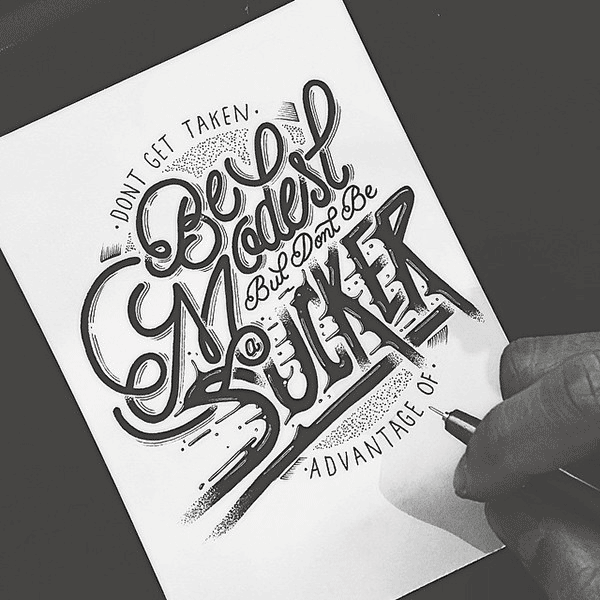 DONT GET TAKEN
Be
Modest
But Dont Be
a
SUCKER
ADVANTAGE OF